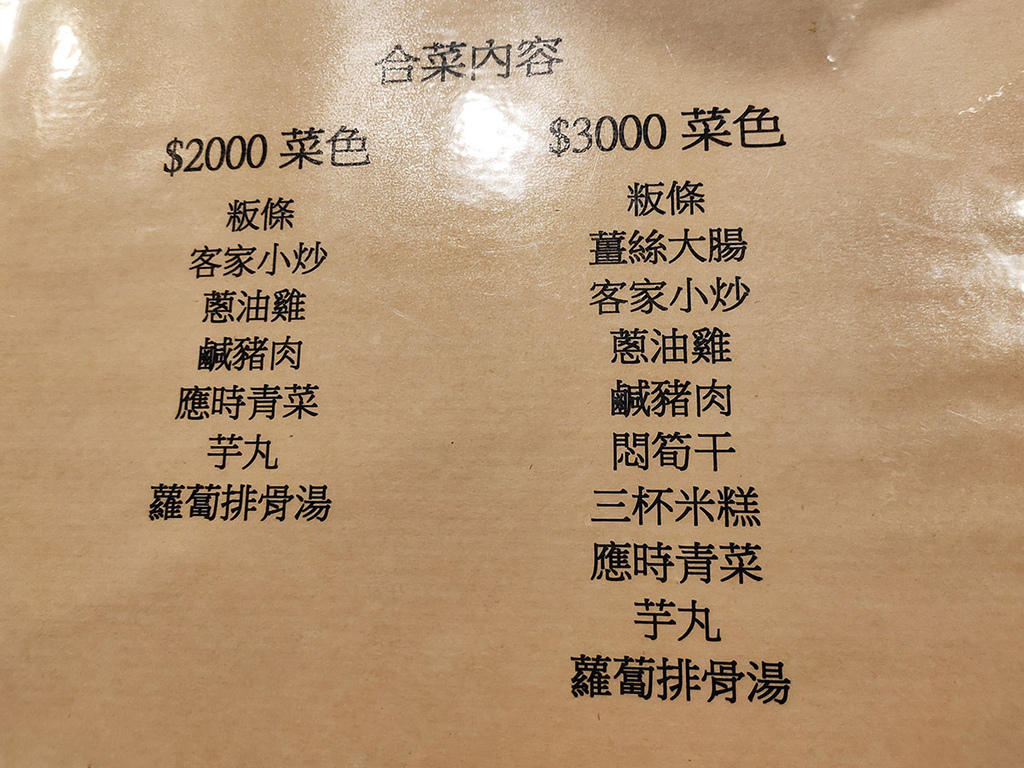 合菜內容
$2000 菜色
粄條
客家小炒
蔥油雞
鹹豬肉
應時青菜
芋丸
蘿蔔排骨湯
$3000 菜色
粄條
薑絲大腸
客家小炒
蔥油雞
鹹豬肉
悶筍干
三杯米糕
應時青菜
芋丸
蘿蔔排骨湯